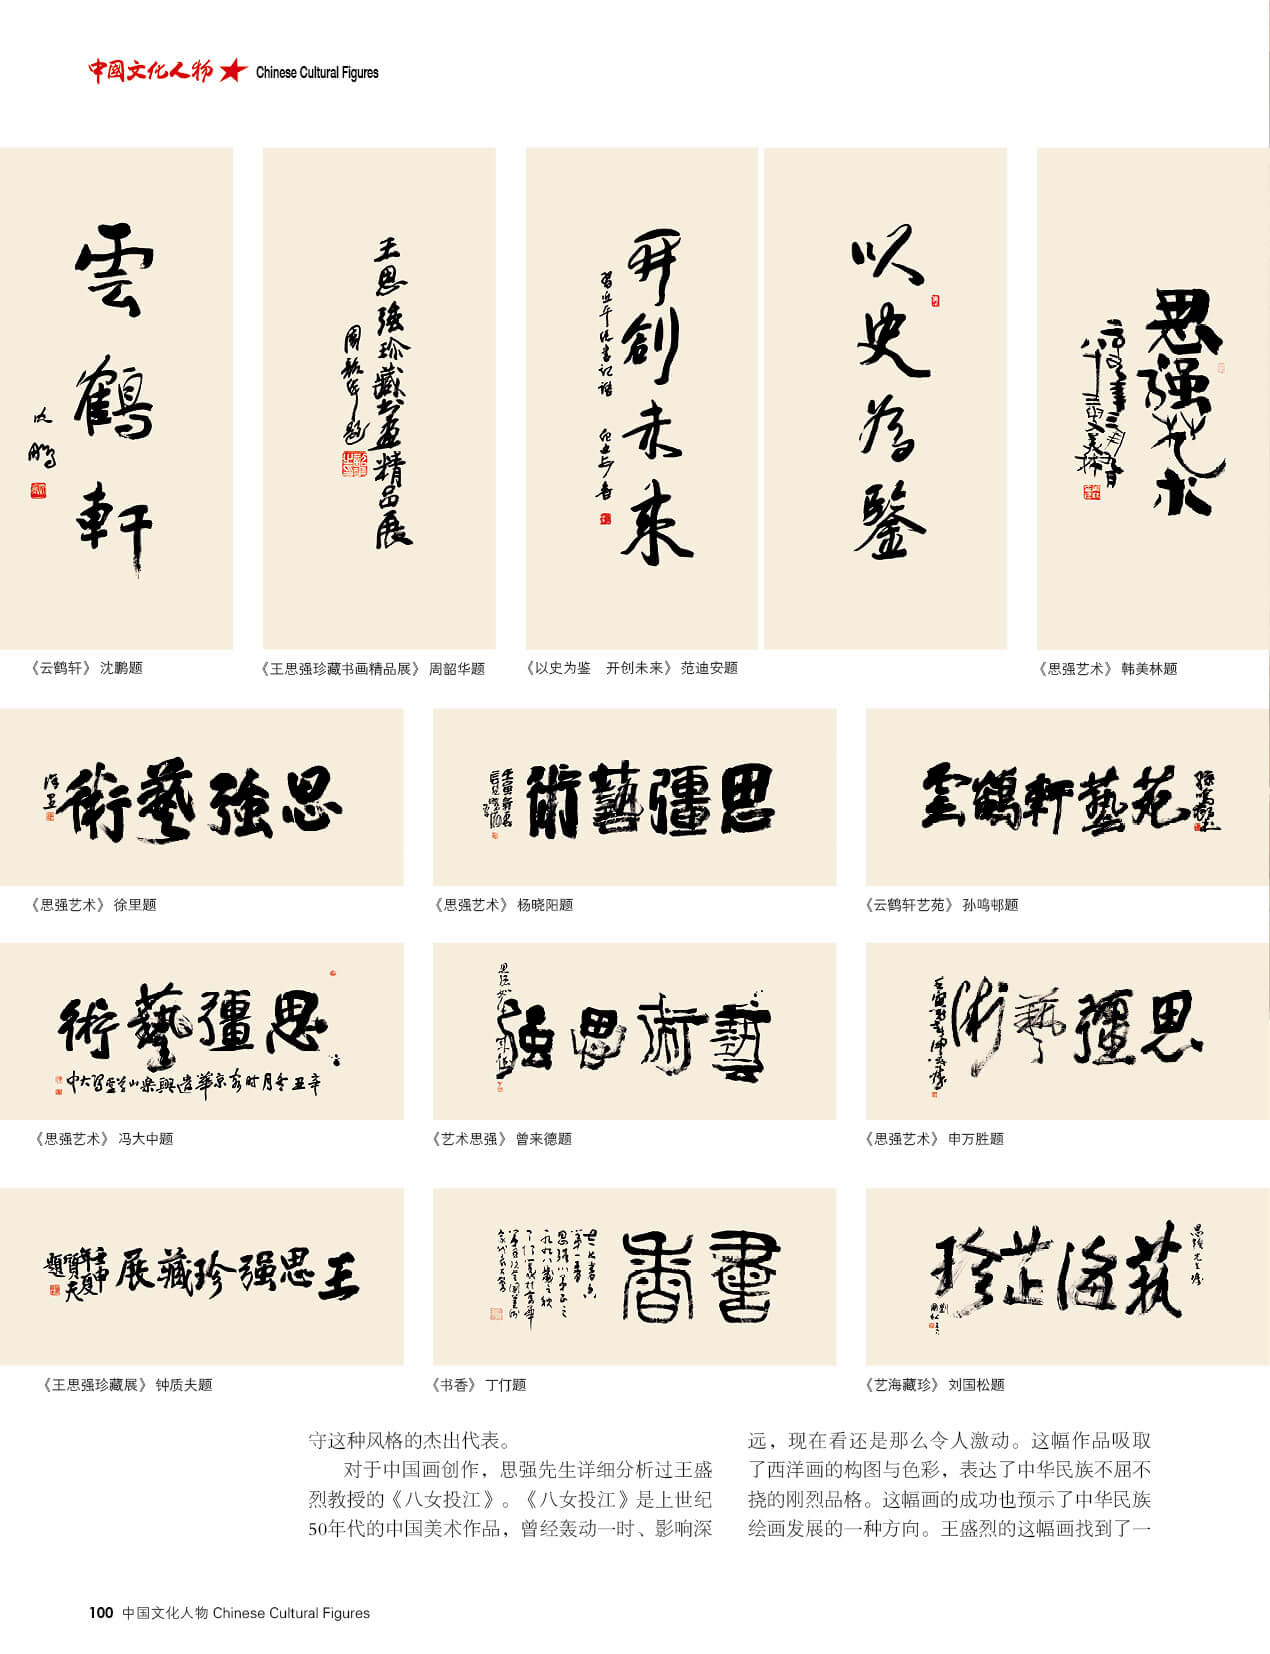 中國文化人物 ★ Chinese Cultural Figures
雲鶴軒
沈鹏
王思强珍藏书画精品展
周韶华题
以史為鑒
开创未来
思强艺术
《云鹤轩》 沈鹏题
《王思强珍藏书画精品展》 周韶华题
《以史为鉴　开创未来》 范迪安题
《思强艺术》 韩美林题
術藝強思
術藝彊思
雲鶴軒藝苑
《思强艺术》 徐里题
《思强艺术》 杨晓阳题
《云鹤轩艺苑》 孙鸣邨题
術藝彊思
强思術藝
術藝彊思
《思强艺术》 冯大中题
《艺术思强》 曾来德题
《思强艺术》 申万胜题
展藏珍强思王
香書
《王思强珍藏展》 钟质夫题
《书香》 丁仃题
《艺海藏珍》 刘国松题
守这种风格的杰出代表。
对于中国画创作，思强先生详细分析过王盛
烈教授的《八女投江》。《八女投江》是上世纪
50年代的中国美术作品，曾经轰动一时、影响深
远，现在看还是那么令人激动。这幅作品吸取
了西洋画的构图与色彩，表达了中华民族不屈不
挠的刚烈品格。这幅画的成功也预示了中华民族
绘画发展的一种方向。王盛烈的这幅画找到了一
100 中国文化人物 Chinese Cultural Figures